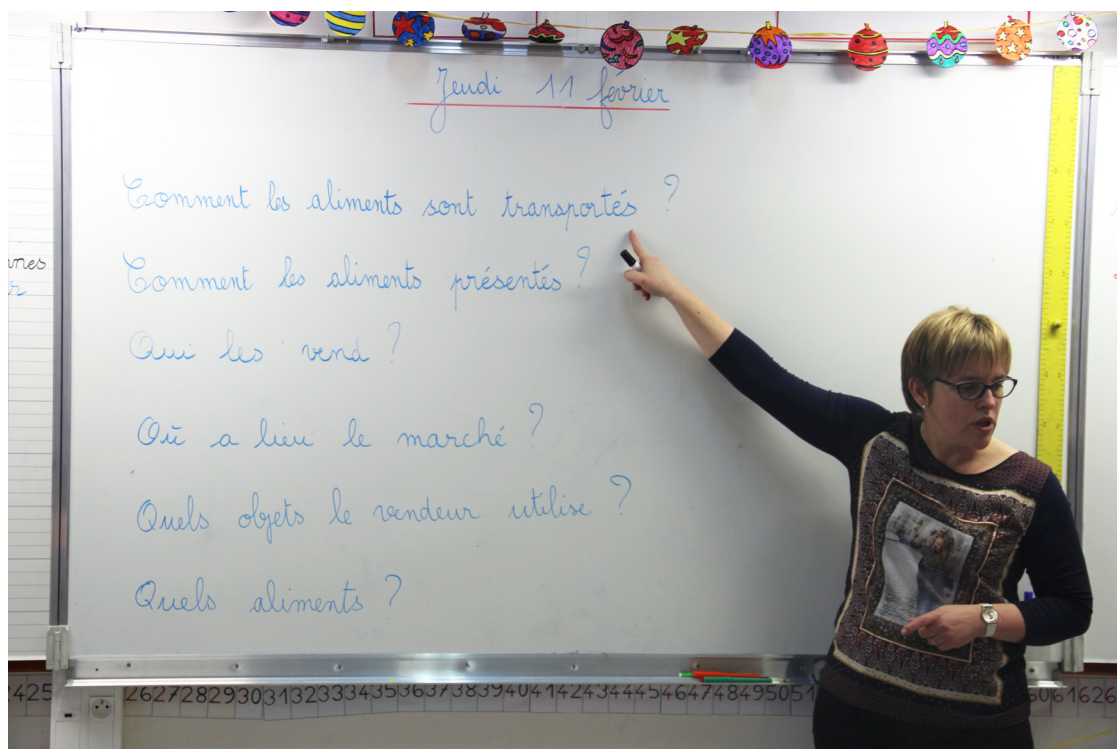 Jeudi 11 février
Comment les aliments sont transportés ?
Comment les aliments présentés ?
Qui les vend ?
Où a lieu le marché ?
Quels objets le vendeur utilise ?
Quels aliments ?
nnes
2425 26 27 28 29 30 31 32 33 34 35 36 37 38 39 40 41 42 43 44 45 46 47 48 49 50 51 60 61 62 6